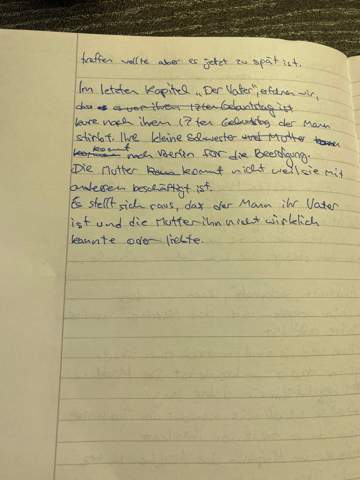 treffen wollte aber es jetzt zu spät ist.
Im letzten Kapitel „Der Vater", erfahren wir,
das es vor ihrem 17ten Geburtstag ist
kurz nach ihrem 17ten Geburtstag der Mann
stirbt. Ihre kleine Schwester und Mutter
kommt nach Berlin für die Beerdigung.
Die Mutter kommt nicht weil sie mit
anderem beschäftigt ist.
Es stellt sich raus, dax der Mann ihr Vater
ist und die Mutter ihn nicht wirklich
kannte oder liebte.